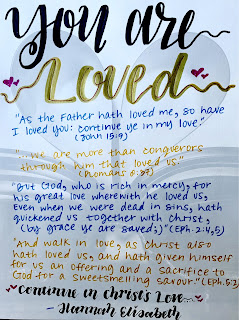 you are
Loved
"As the Father hath loved me, so have
I loved you: continue ye in my love."
(John 15:9)
"...we are more than conquerors
through him that loved us."
(Romans 8:37)
"But God, who is rich in mercy, for
his great love wherewith he loved us,
Even when we were dead in sins, hath
quickened us together with Christ,
(by grace ye are saved;)" (Eph. 2:4,5)
"And walk in love, as Christ also
hath loved us, and hath given himself
for us an offering and a sacrifice to
God for a sweetsmelling savour." (Eph. 5:2)
~Continue in Christ's Love...
-Hannah Elisabeth